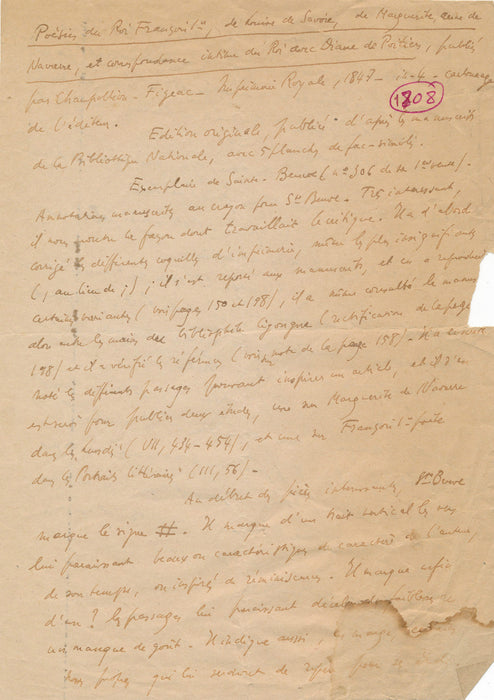 Poésies du Roi François Ier, de Louise de Savoie, de Marguerite, reine de
Navarre, et correspondance intime du Roi avec Diane de Poitiers, publiées
par Champollion-Figeac - Imprimerie Royale, 1847 - in-4 - cartonnage
de l'éditeur.
1808
Edition originale, publiée d'après les manuscrits
de la Bibliothèque Nationale, avec 5 planches de fac-similé.
Exemplaire de Sainte-Beuve (n° 906 de sa 1re vente).
Annotations manuscrites au crayon par Ste Beuve. Très intéressant,
il nous montre la façon dont travaillait le critique. Il a d'abord
corrigé les différentes coquilles d'imprimerie, même les plus insignifiantes
(, au lieu de ;) ; il s'est reporté aux manuscrits, et en a reproduit
certaines variantes (voir pages 150 et 198), il a même consulté le manus
alors entre les mains du bibliophile Cigongne (rectification de la page
198) et il a vérifié les références (voir note de la page 158) - Il a ensuite
noté les différents passages pouvant inspirer un article, et il s'en
est servi pour publier deux études, une sur Marguerite de Navarre
dans les Lundis (VII, 434-454), et une sur François Ier poète
dans les Portraits littéraires (III, 56) -
Au début des pièces intéressantes, Ste Beuve
marque le signe #. Il marque d'un trait vertical les vers
lui paraissant beaux ou caractéristiques du caractère de l'auteur,
de son temps, ou inspirés de réminiscences. Il marque enfin
d'un ? les passages lui paraissant déceler du faiblesse
un manque de goût. Il indique aussi, en marge,
qui lui servent de repère pour